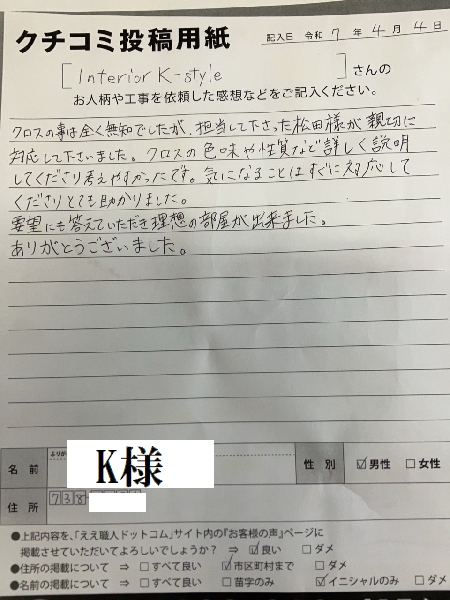 クチコミ投稿用紙
記入日 令和 7 年 4 月 4 日
[Interior K-style]さんの
お人柄や工事を依頼した感想などをご記入ください。
クロスの事は全く無知でしたが、担当して下さった松田様が親切に
対応して下さいました。クロスの色味や性質など詳しく説明
してくださり考えやすかったです。気になることはすぐに対応して
くださりとても助かりました。
要望にも答えていただき理想の部屋が出来ました。
ありがとうございました。
名前 K様 性別 ☑男性 □女性
住所 738
●上記内容を、「ええ職人ドットコム」サイト内の『お客様の声』ページに
掲載させていただいてよろしいでしょうか? ⇒ ☑良い □ダメ
●住所の掲載について ⇒ □すべて良い ☑市区町村まで □ダメ
●名前の掲載について ⇒ □すべて良い □苗字のみ ☑イニシャルのみ □ダメ